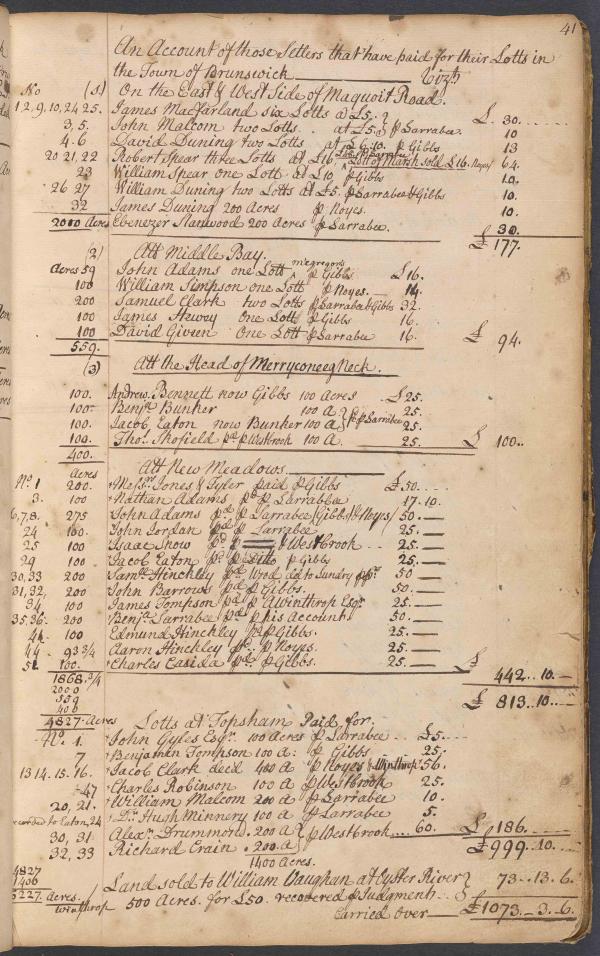 41
An Account of those Setlers that have paid for their Lotts in
the Town of Brunswick Vizt
No (1) On the East & West Side of Maquoit Road.
1,2,9,10,24 25. James Macfarland six Lotts at £5. £ 30.
3, 5. John Malcom two Lotts .. at £5. p Larrabee. 10
4. 6 David Duning two Lotts at £6.10. p Gibbs 13
20 21, 22 Robert Spear three Lotts at £16 Lott of Marsh sold £16. Noyes 64.
23 William Spear one Lott at £10 p Gibbs 10.
26 27 William Duning two Lotts at £5, p Larrabee & Gibbs 10.
32 James Duning 200 Acres p Noyes. 10.
2000 Acres Ebenezer Stanwood 200 Acres p Larrabee. 30.
£ 177.
(2) Att Middle Bay.
Acres 59 John Adams one Lott mcgregors p Gibbs £16.
100 William Simpson one Lott p Noyes. 14.
200 Samuel Clark two Lotts p Larrabee & Gibbs 32.
100 James Hewey one Lott p Gibbs 16.
100 David Giveen One Lott p Larrabee 16. £ 94.
559.
(3) Att the Head of Merryconeeg Neck.
100. Andrew Bennett now Gibbs 100 Acres £25.
100. Benja Bunker 100 A p Larrabee 25.
100. Jacob Eaton now Bunker 100 A 25.
100. Thos. Shofield pd p Westbrook 100 A. 25. £ 100..
400.
Acres Att New Meadows.
No. 1 200. Messrs. Jones & Tyler paid p Gibbs £50.
3. 100 Nathan Adams pd p Larrabee 17.10.
6,7,8. 275 John Adams pd p Larrabee/Gibbs/& Noyes/ 50.
24 100. John Jordan pd p Larrabee 25.
25 100 Isaac Snow pd p Westbrook .. 25.
29 100 Jacob Eaton pd p Ditto p Gibbs 25.
30,33 200 Samll Hinckley pd Wood dd to Sundry 50
31,32, 200 John Barrows pd p Gibbs. 50.
34 100 James Tompson pd p A Winthrop Esqr 25.
35,36. 200 Benja. Larrabee pd p his Account. 50.
41. 100 Edmund Hinckley pd p Gibbs. 25.
44. 93 3/4 Aaron Hinckley p Noyes. 25.
51. 100. Charles Casida pd p Gibbs. 25.
1868.3/4 £ 442..10.
2000
559
400 £ 813..10.
4827. Acres Lotts at Topsham Paid for.
No. 1. John Gyles Esqr. 100 Acres p Larrabee .. £5.
7 Benjamin Tompson 100 A: p Gibbs 25.
13 14. 15. 16. Jacob Clark decd 400 A p Noyes & Winthrop 56.
47 Charles Robinson 100 A p Westbrook 25.
20, 21. William Malcom 200 A p Larrabee 10.
recorded to Eaton, 24 Dr. Hugh Minnery 100 A p Larrabee 5.
30, 31 Alexr. Drummond. 200 A p Westbrook.... 60. £ 186.
32, 33 Richard Crain . 200 A £ 999..10.
1400 Acres.
4827
1400 Land sold to William Vaughan at Oyster River 73..13..6.
6227. Acres. Winthrop 500 Acres. for £50. recovered p Judgment
Carried over £1073..3..6.